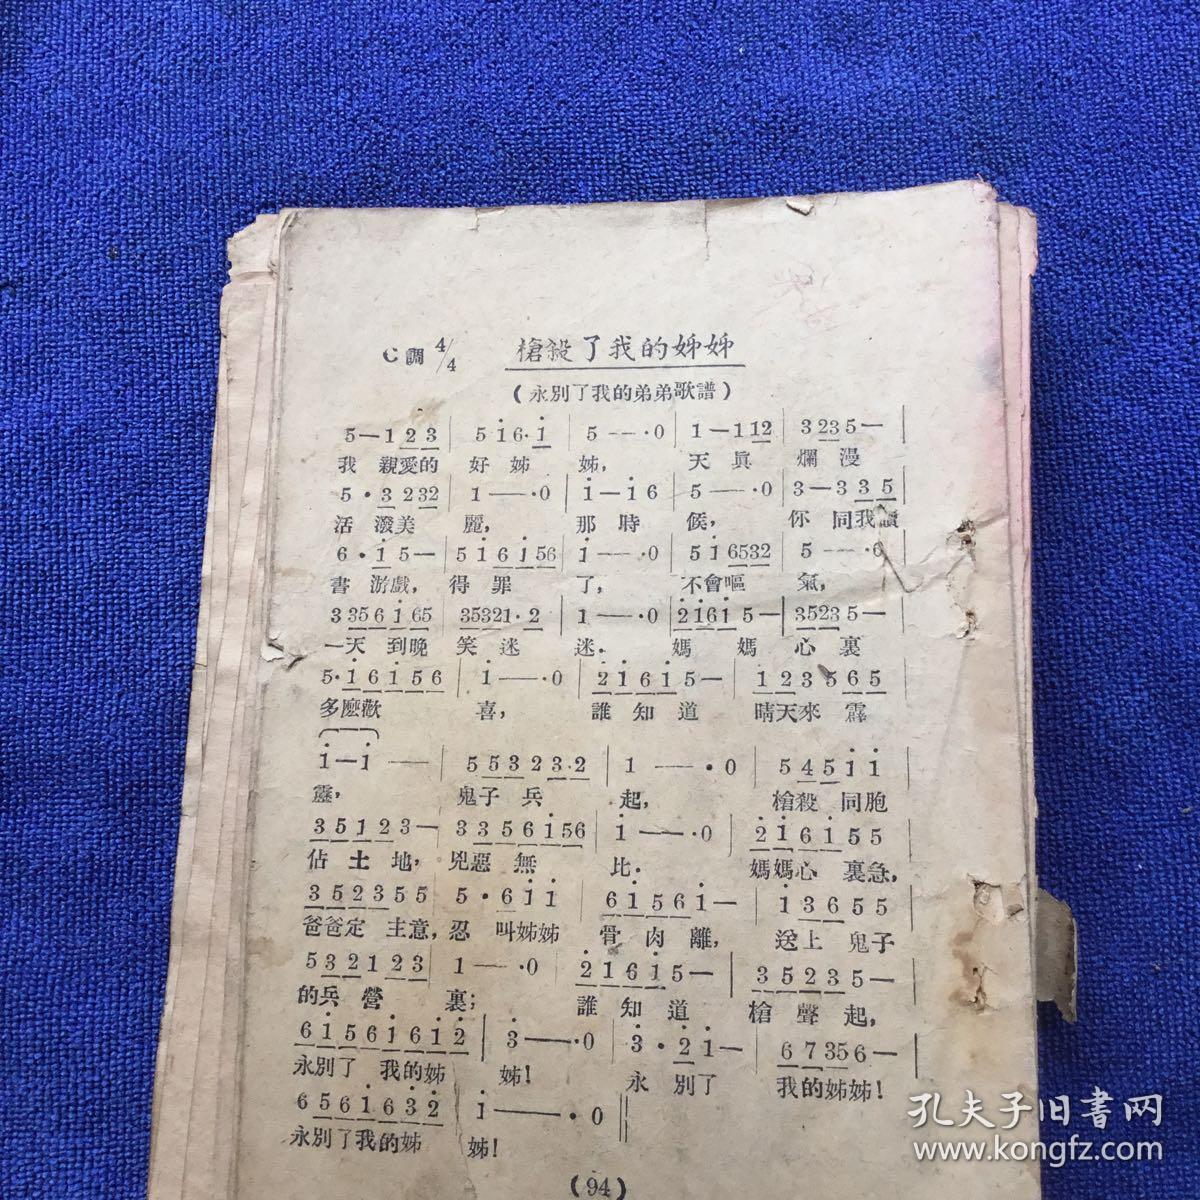 C調 4/4 槍殺了我的姊姊
(永別了我的弟弟歌譜)
5—1 2 3 | 5 1 6·1 | 5 —— ·0 | 1—1 12 | 3 23 5— |
我 親愛的 好 姊 姊, 天 眞 爛 漫
5 · 3 2 32 | 1 —— ·0 | 1—1 6 | 5 —— ·0 | 3—3 3 5
活 潑美 麗, 那 時 候, 你 同我讀
6 · 1 5— | 5 1 6 1 56 | 1 —— ·0 | 5 1 6532 | 5 —— ·0
書 游戲, 得 罪 了, 不會嘔 氣,
3 35 6 1 65 | 35321·2 | 1 —— ·0 | 2161 5— | 3523 5—
一天 到晚 笑 迷 迷. 媽 媽 心 裏
5·1 6 1 5 6 | 1 —— ·0 | 2 1 6 1 5— | 1 2 3 5 6 5
多麽歡 喜, 誰 知 道 晴天來 霹
1—1 —— | 5 5 3 2 3·2 | 1 —— ·0 | 5 4 5 1 1
靂, 鬼子 兵 起, 槍殺 同胞
3 5 1 2 3— | 3 3 5 6 1 56 | 1 —— ·0 | 2 1 6 1 5 5
佔 土 地, 兇惡 無 比. 媽媽心 裏急,
3 5 2 3 5 5 | 5 · 6 1 1 | 6 1 5 6 1— | 1 3 6 5 5
爸爸定 主意, 忍 叫姊姊 骨 肉 離, 送上 鬼子
5 3 2 1 2 3 | 1 —— ·0 | 2 1 6 1 5— | 3 5 2 3 5—
的兵 營 裏; 誰 知 道 槍 聲 起,
6 1 5 6 1 6 1 2 | 3 —— ·0 | 3 · 2 1— | 6 7 35 6—
永別了 我的姊 姊! 永 別了 我的姊姊!
6 5 6 1 6 3 2 | 1 —— ·0 ‖
永別了我的姊 姊!
(94)
孔夫子旧書网
www.kongfz.com